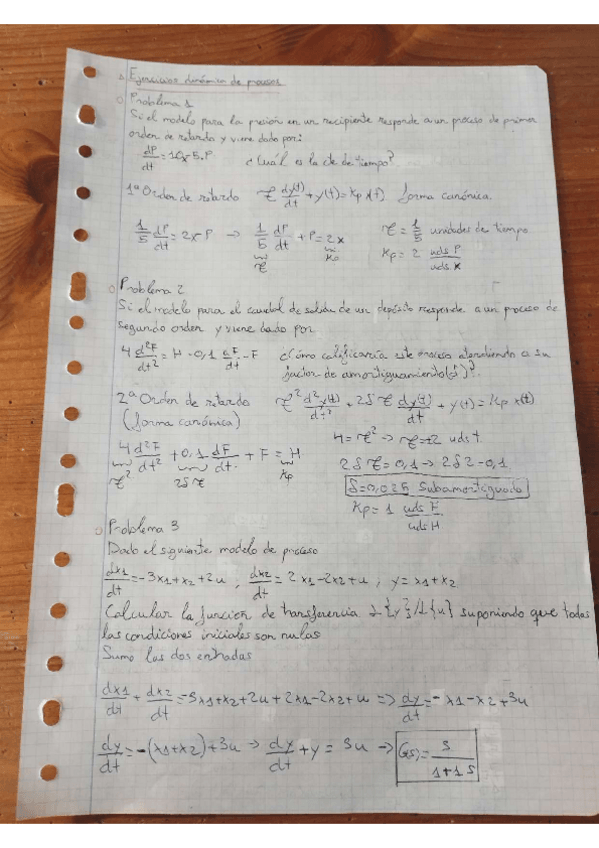 Ejercicios dinámica de procesos
Problema 1
Si el modelo para la presión en un recipiente responde a un proceso de primer
orden de retardo y viene dado por:
dP/dt = 10x-5·P ¿Cuál es la cte de tiempo?
1ª Orden de retardo τ dy(t)/dt + y(t) = Kp x(t) forma canónica
1/5 dP/dt = 2x-P → 1/5 dP/dt + P = 2x τ = 1/5 unidades de tiempo
τ Kp Kp = 2 uds P/uds X
Problema 2
Si el modelo para el caudal de salida de un depósito responde a un proceso de
segundo orden y viene dado por
4 d²F/dt² = H - 0,1 dF/dt - F ¿Cómo calificaría este proceso atendiendo a su
factor de amortiguamiento(δ)?
2ª Orden de retardo τ² d²y(t)/dt² + 2δτ dy(t)/dt + y(t) = Kp x(t)
(forma canónica)
4 = τ² → τ = +2 uds t.
4 d²F/dt² + 0,1 dF/dt + F = H
τ² 2δτ Kp
2δτ = 0,1 → 2δ2 = 0,1
δ = 0,025 Subamortiguado
Kp = 1 uds F/uds H
Problema 3
Dado el siguiente modelo de proceso
dx1/dt = -3x1+x2+2u ; dx2/dt = 2x1-2x2+u ; y = x1+x2
Calcular la función de transferencia L{y}/L{u} suponiendo que todas
las condiciones iniciales son nulas
Sumo las dos entradas
dx1/dt + dx2/dt = -3x1+x2+2u+2x1-2x2+u => dy/dt = -x1-x2+3u
dy/dt = -(x1+x2)+3u → dy/dt + y = 3u → G(s) = 3/(1+1s)